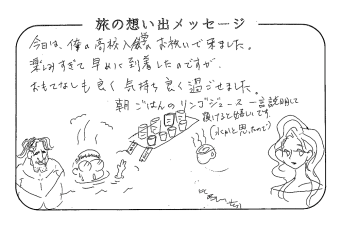 旅の想い出メッセージ
今日は、俺の高校入学のお祝いで来ました。
楽しみすぎて早めに到着したのですが、
おもてなしも良く気持ち良く過ごせました。
朝ごはんのリンゴジュース一言説明して
頂けると嬉しいです。
と思ったので)